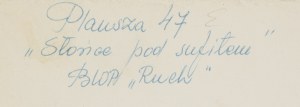 Plansza 47
„Słońce pod sufitem"
BWA „Ruch"